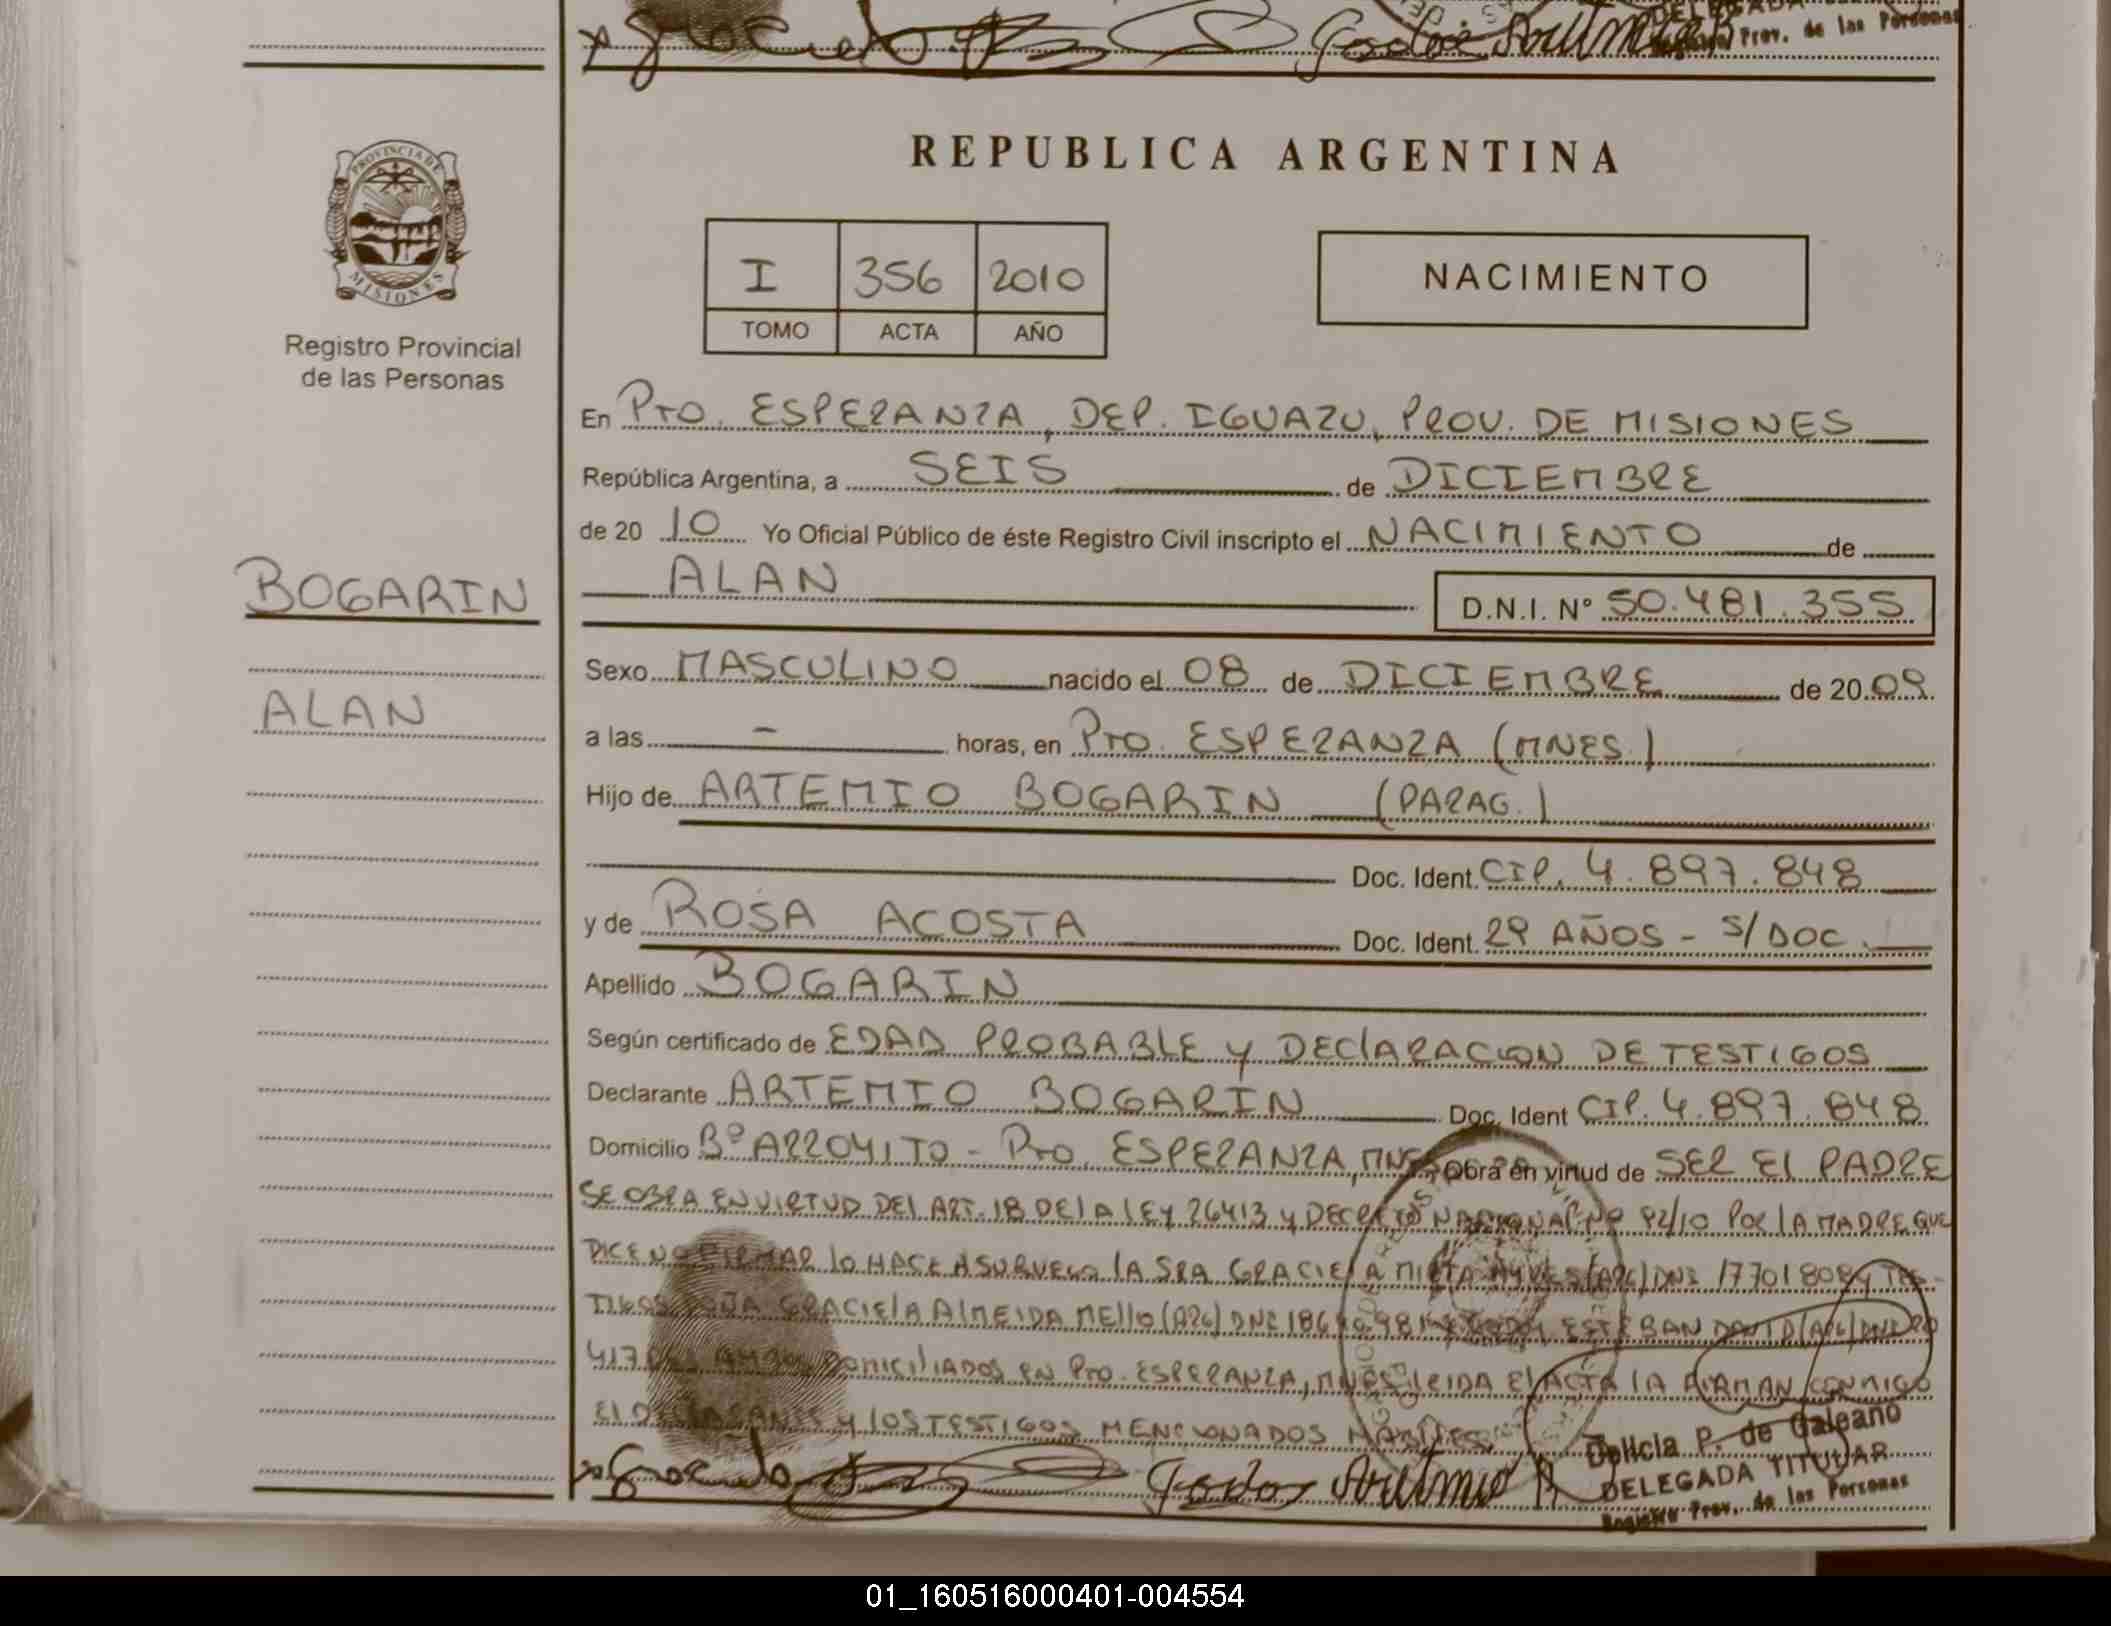 DELEGADA
Registro Prov. de las Personas
REPUBLICA ARGENTINA
PROVINCIA DE
MISIONES
Registro Provincial
de las Personas
I 356 2010
TOMO ACTA AÑO
NACIMIENTO
En PTO. ESPERANZA, DEP. IGUAZU, PROV. DE MISIONES
República Argentina, a SEIS de DICIEMBRE
de 20 10 Yo Oficial Público de éste Registro Civil inscripto el NACIMIENTO de
BOGARIN
ALAN D.N.I. N° 50.481.355
Sexo MASCULINO nacido el 08 de DICIEMBRE de 20 09
ALAN
a las - horas, en PTO. ESPERANZA (MNES.)
Hijo de ARTEMIO BOGARIN (PARAG.)
Doc. Ident. CIP. 4.897.848
y de ROSA ACOSTA Doc. Ident. 29 AÑOS - S/DOC.
Apellido BOGARIN
Según certificado de EDAD PROBABLE Y DECLARACION DE TESTIGOS
Declarante ARTEMIO BOGARIN Doc. Ident CIP. 4.897.848
Domicilio B° ARROYITO - PTO. ESPERANZA, MNES. Obra en virtud de SER EL PADRE
SE OBRA EN VIRTUD DEL ART. 18 DE LA LEY 26413 Y DECRETO NACIONAL N° 92/10 POR LA MADRE QUE
DICE NO FIRMAR LO HACE A SU RUEGO LA SRA GRACIELA MIRTA (ARG) DNI 17701808 Y TES-
TIGOS GRACIELA ALMEIDA MELLO (ARG) DNI ESTEBAN DAVID (ARG) DNI
DOMICILIADOS EN PTO. ESPERANZA, MNES. LEIDA EL ACTA LA FIRMAN CONMIGO
EL DECLARANTE Y LOS TESTIGOS MENCIONADOS HABILES
Delicia P. de Galeano
DELEGADA TITULAR
Registro Prov. de las Personas
01_160516000401-004554